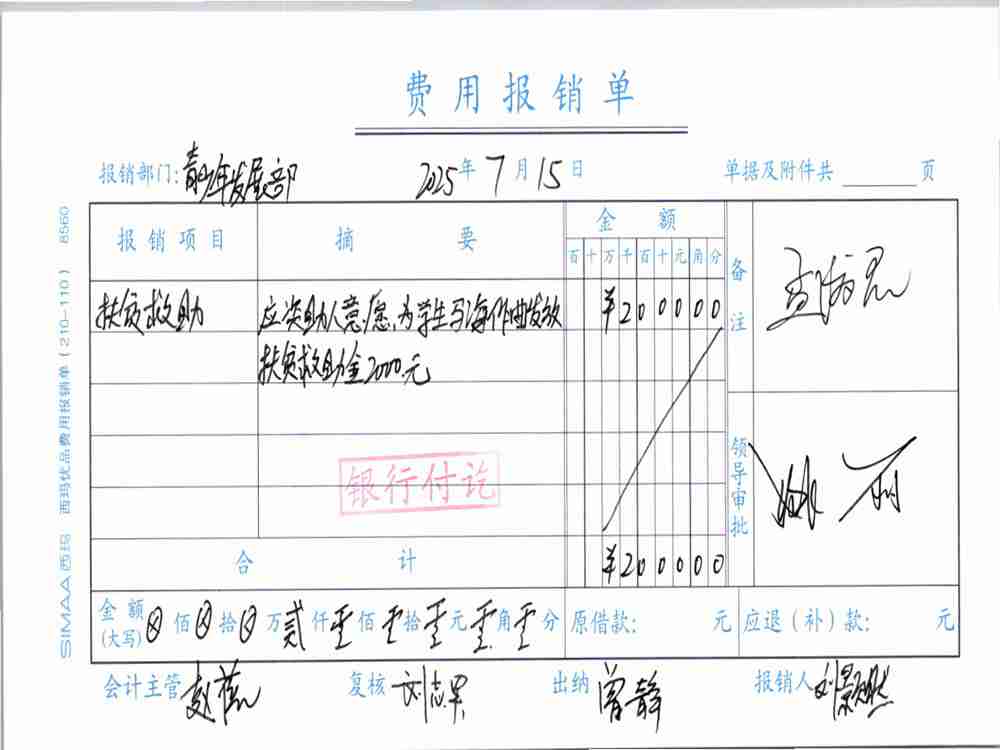 费用报销单
报销部门：青少年发展部 2025年7月15日 单据及附件共 页
报销项目 摘要 金额 备注
百十万千百十元角分
扶贫救助 应资助人意愿，为学生马海作曲发放 ¥200000
扶贫救助金2000元
银行付讫
领导审批
合计 ¥200000
金额(大写) 佰 拾 万贰仟零佰零拾零元零角零分 原借款： 元 应退（补）款： 元
会计主管 复核 刘志军 出纳 曾静 报销人
SIMAA西玛 西玛优品费用报销单（210-110） 8560